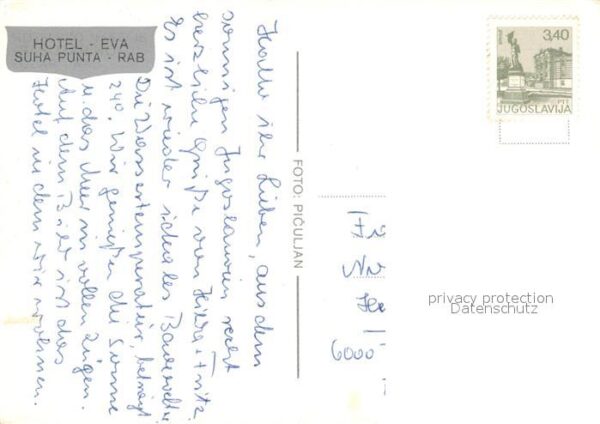 HOTEL - EVA
SUHA PUNTA - RAB
Hallo ihr Lieben, aus dem
sonnigen Jugoslawien recht
herzliche Grüße von + Fritz.
Es ist wieder ideales Badewetter.
Die Wassertemperatur, beträgt
24°. Wir genießen die Sonne
u. das Meer in vollen Zügen.
Auf dem Bild ist das
Hotel in dem wir wohnen.
FOTO: PIČULJAN
3,40
JUGOSLAVIJA
PTT
6000
privacy protection
Datenschutz